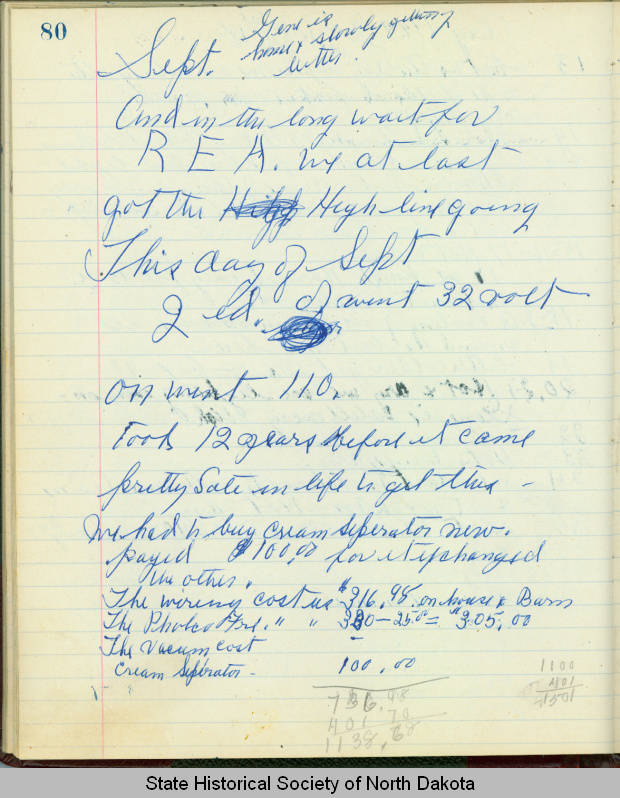 80
Gene is
home & slowly getting
better.
Sept.
And in the long wait for
R E A. we at last
got the High line going
This day of Sept
2 ed. of went 32 volt
on went 110.
Took 12 years before it came
pretty late in life to get this –
we had to buy cream seperator new.
payed $100.00 for it exchanged
the other.
The wiring cost us $316.98. on house & Barn
The Philco Fre. " " 330 – 25.00 = $305.00
The Vacum cost
Cream Seperator – 100.00
736.98
401 70
1138.68
1100
401
1501
State Historical Society of North Dakota